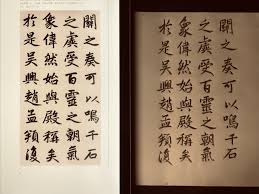 闢之奏可以鳴千石
之虡受百靈之朝氣
象偉然始與殿稱矣
於是吳興趙孟頫復
闢之奏可以鳴千石
之虡受百靈之朝氣
象偉然始與殿稱矣
於是吳興趙孟頫復